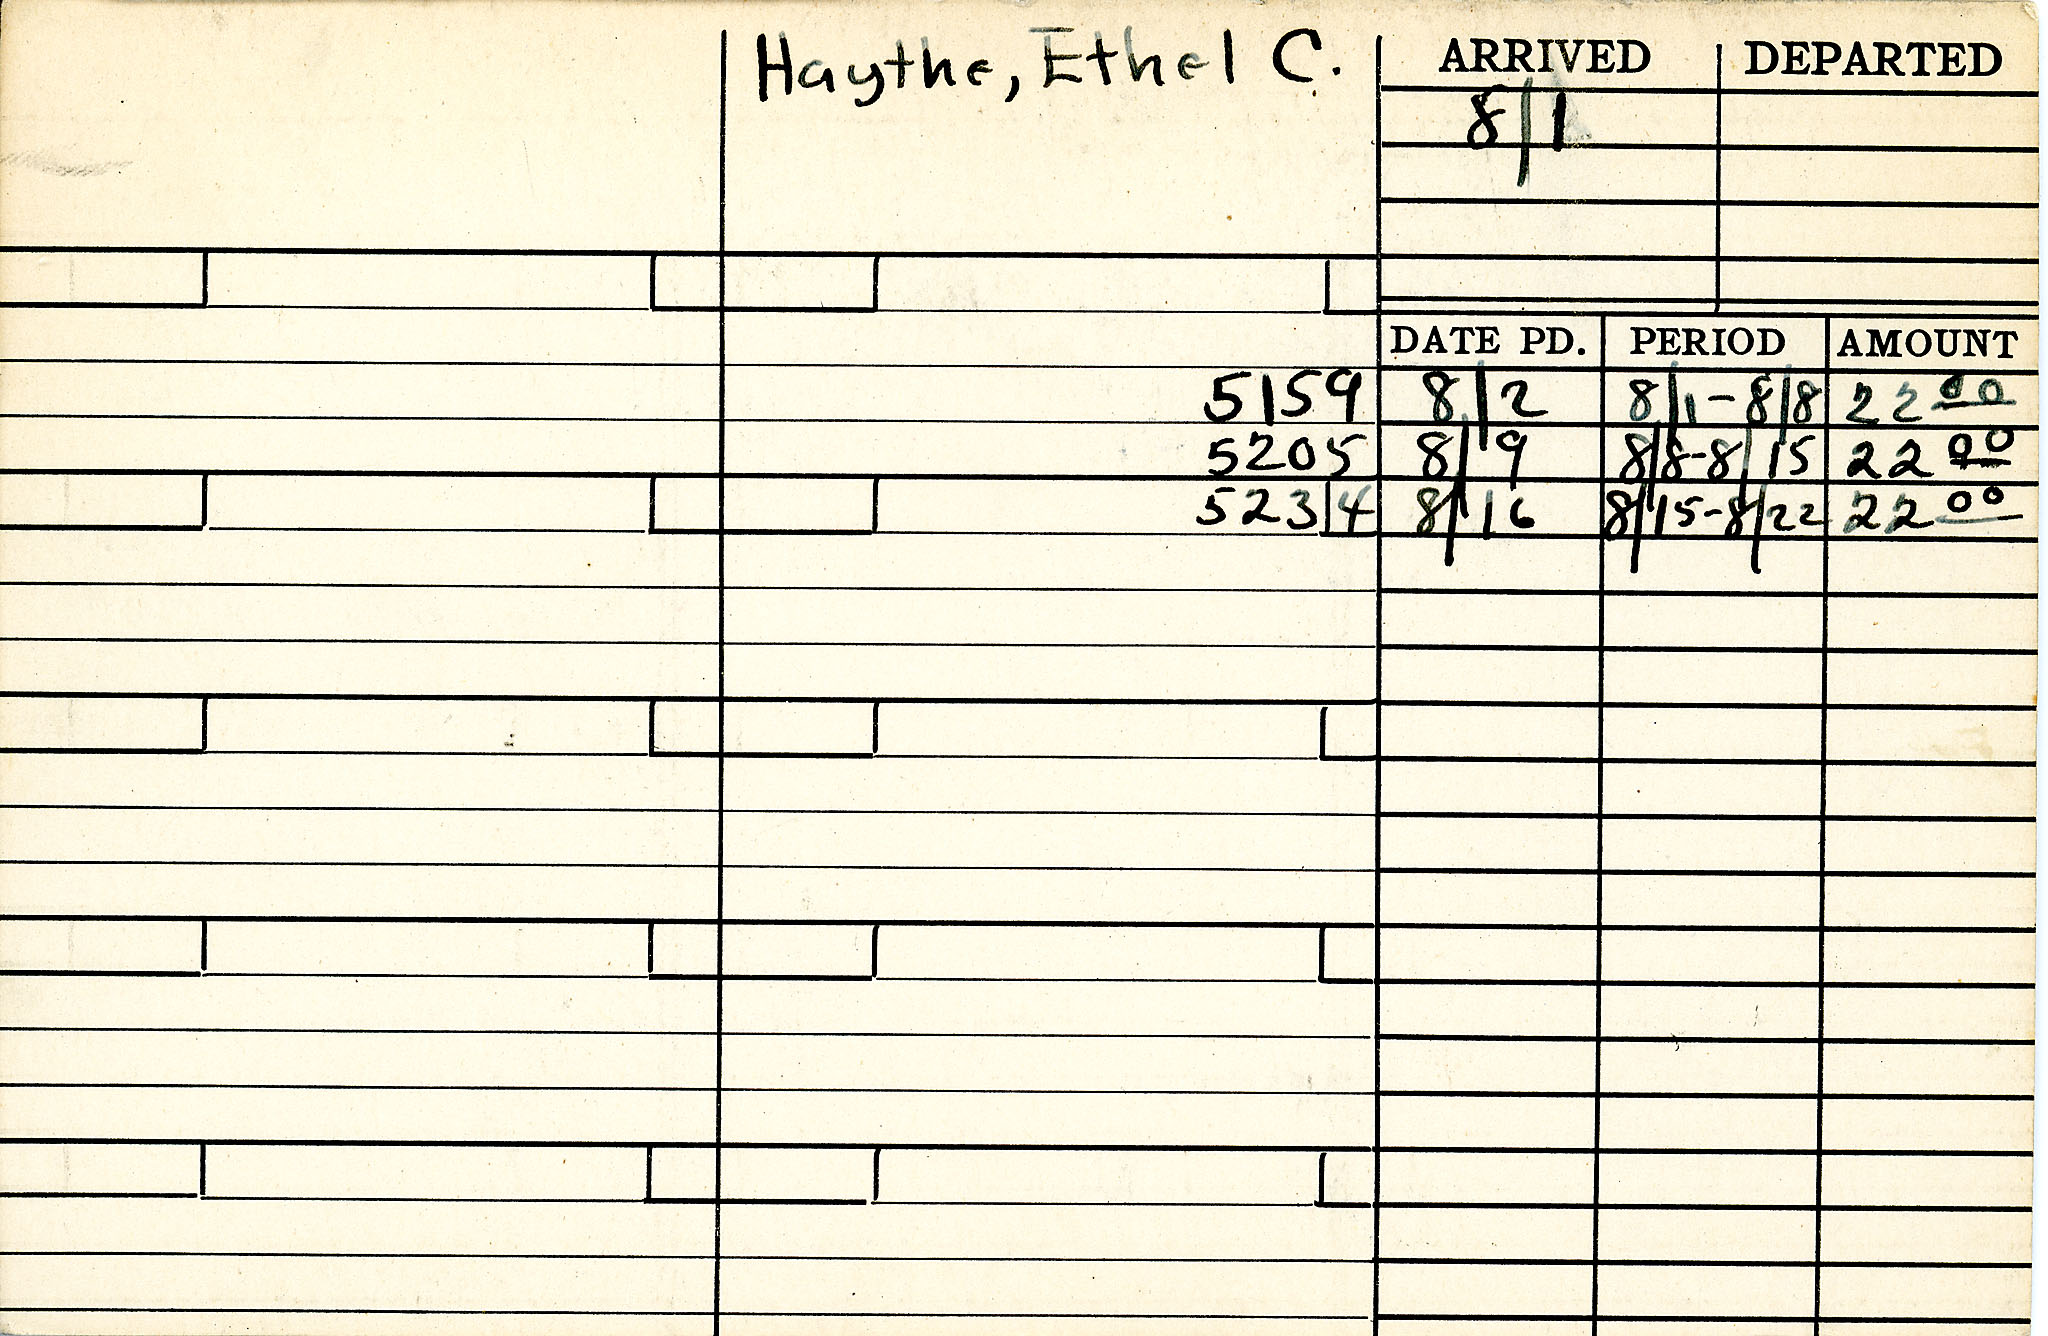 Haythe, Ethel C.
ARRIVED DEPARTED
8/1
DATE PD. PERIOD AMOUNT
5159 8/2 8/1-8/8 22 00
5205 8/9 8/8-8/15 22 00
5234 8/16 8/15-8/22 22 00